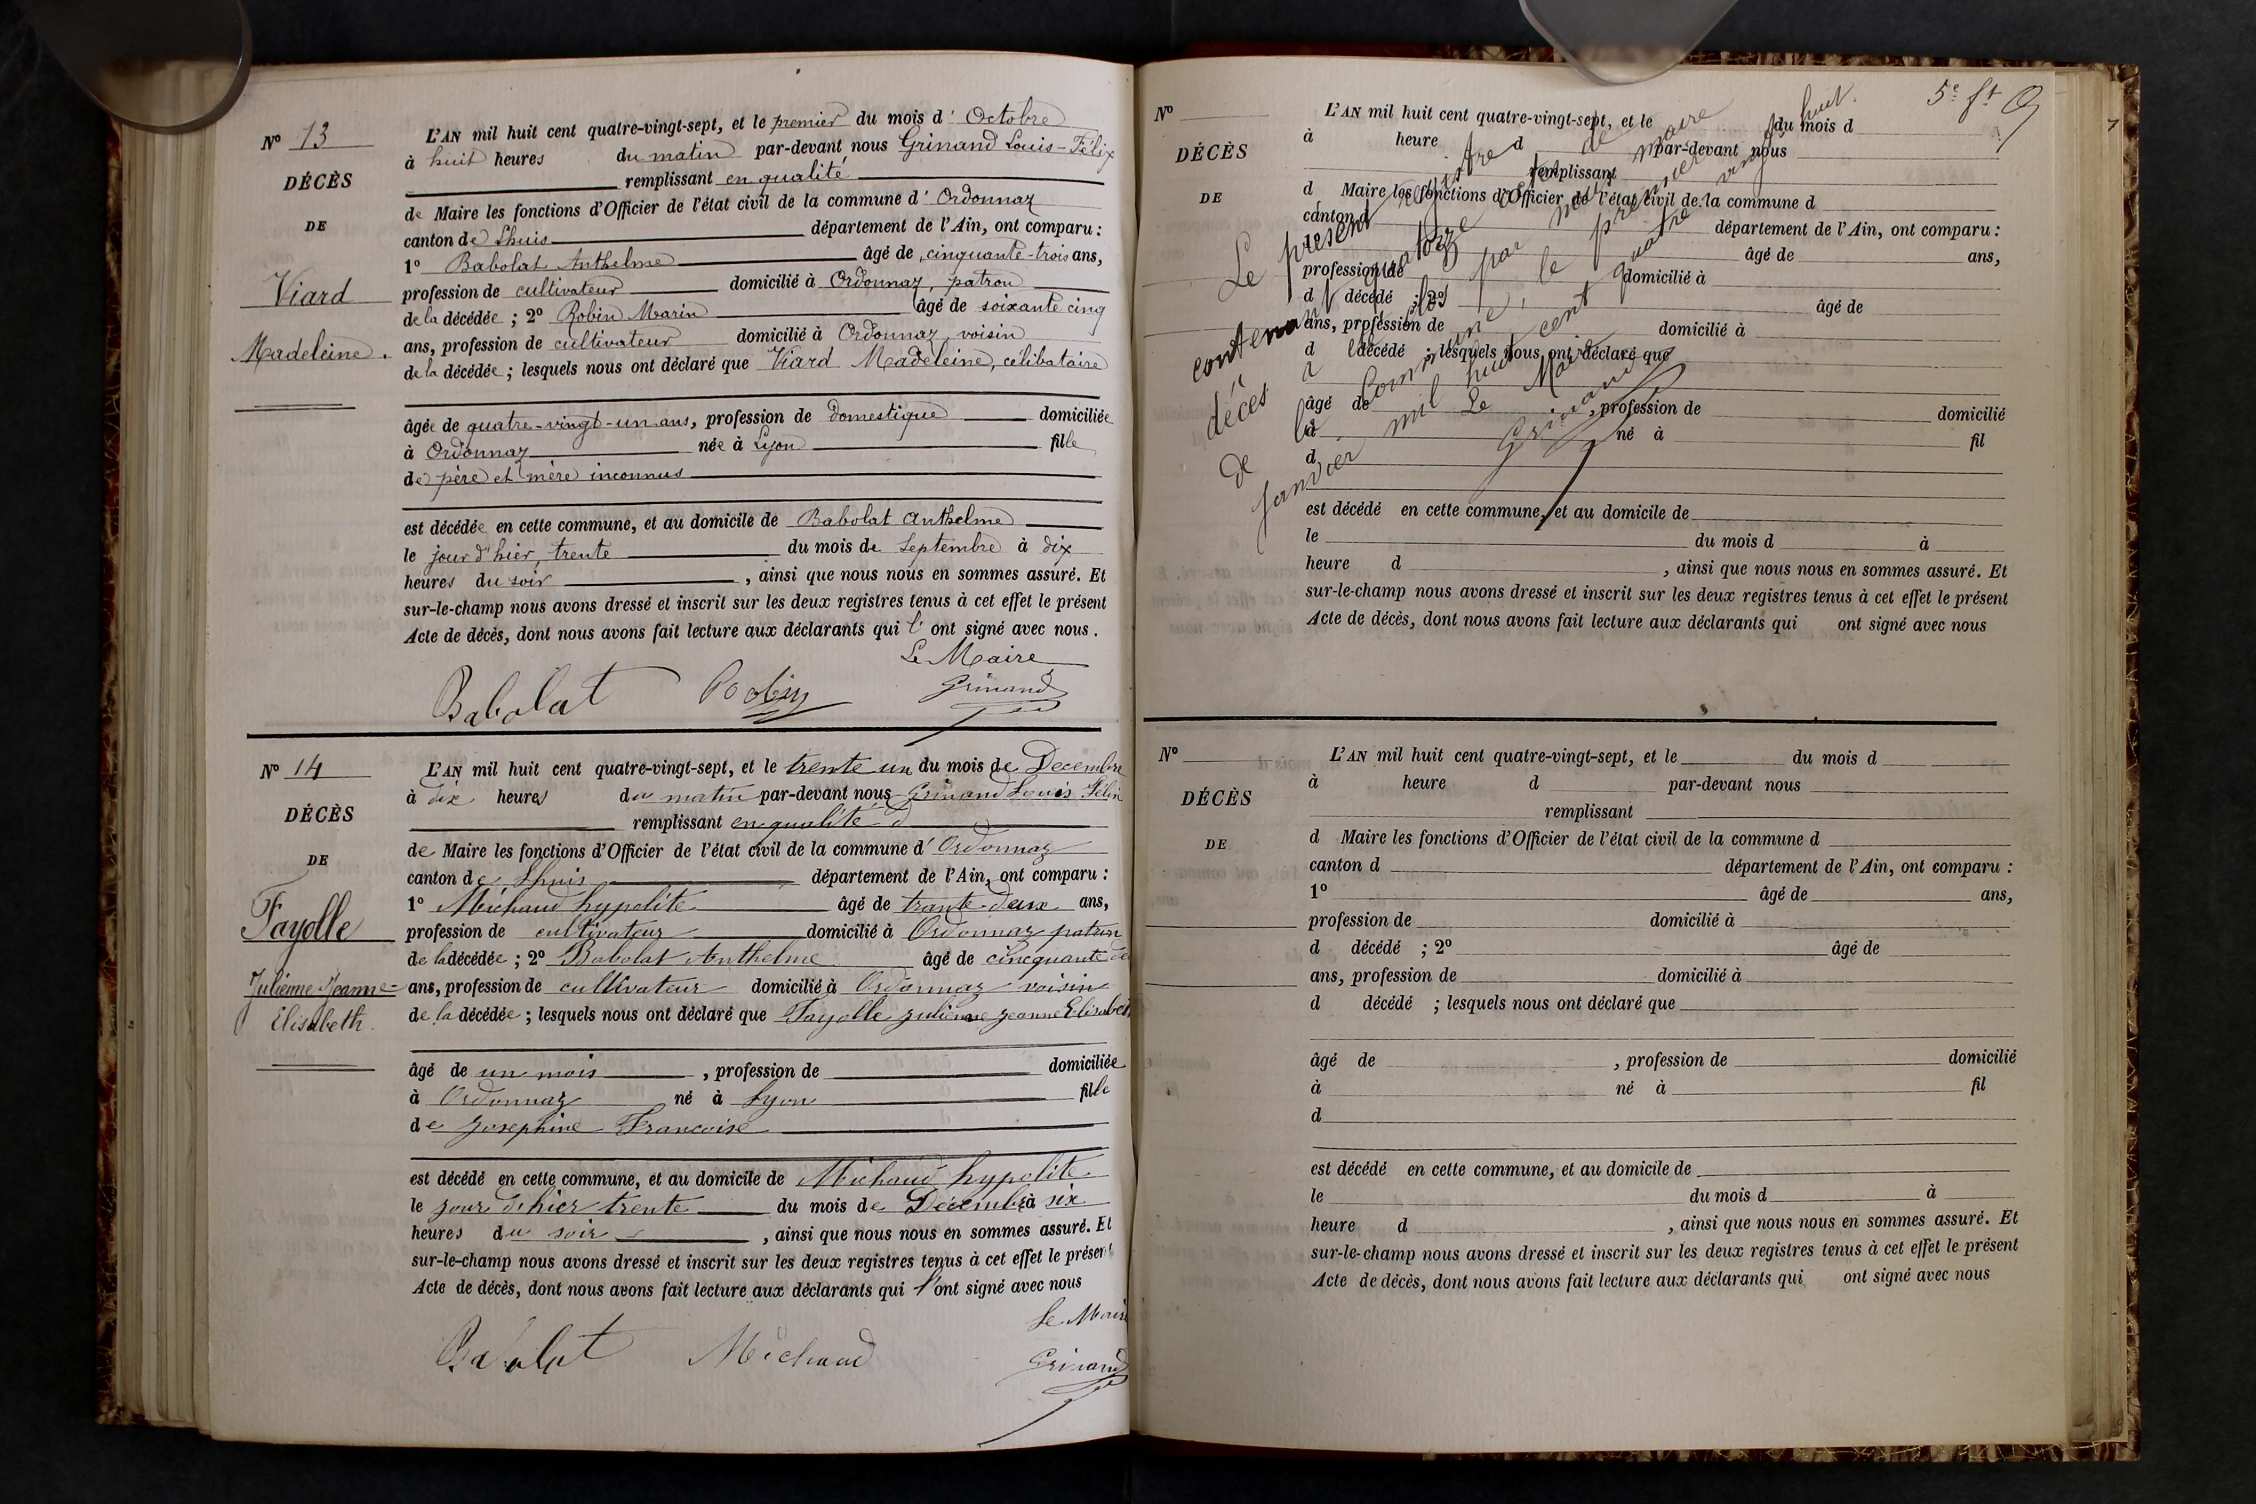 N° 13
DÉCÈS
DE
Viard
Madeleine.
L'AN mil huit cent quatre-vingt-sept, et le premier du mois d' Octobre
à huit heures du matin par-devant nous Grinand Louis-Félix
remplissant en qualité
de Maire les fonctions d'Officier de l'état civil de la commune d' Ordonnaz
canton de Lhuis département de l'Ain, ont comparu :
1° Babolat Anthelme âgé de cinquante-trois ans,
profession de cultivateur domicilié à Ordonnaz, patron
de la décédée ; 2° Robin Marin âgé de soixante cinq
ans, profession de cultivateur domicilié à Ordonnaz voisin
de la décédée ; lesquels nous ont déclaré que Viard Madeleine, célibataire
âgée de quatre-vingt-un ans, profession de domestique domiciliée
à Ordonnaz née à Lyon fille
de père et mère inconnus
est décédée en cette commune, et au domicile de Babolat Anthelme
le jour d'hier, trente du mois de Septembre à dix
heures du soir , ainsi que nous nous en sommes assuré. Et
sur-le-champ nous avons dressé et inscrit sur les deux registres tenus à cet effet le présent
Acte de décès, dont nous avons fait lecture aux déclarants qui l' ont signé avec nous .
Le Maire
Babolat Robin Grinand
N° 14
DÉCÈS
DE
Fayolle
Julienne Jeanne-
Elisabeth.
L'AN mil huit cent quatre-vingt-sept, et le trente un du mois de Decembre
à dix heures du matin par-devant nous Grinand Louis Félix
remplissant en qualité d
de Maire les fonctions d'Officier de l'état civil de la commune d' Ordonnaz
canton de Lhuis département de l'Ain, ont comparu :
1° Michaud hypolite âgé de trante-deux ans,
profession de cultivateur domicilié à Ordonnaz patron
de la décédée ; 2° Babolat Anthelme âgé de cincquante
ans, profession de cultivateur domicilié à Ordonnaz voisin
de la décédée ; lesquels nous ont déclaré que Fayolle julienne jeanne Elisabeth
âgé de un mois , profession de domiciliée
à Ordonnaz né à Lyon fille
de josephine Francoise
est décédé en cette commune, et au domicile de Michaud hypolite
le jour d'hier trente du mois de Décembre à six
heures du soir , ainsi que nous nous en sommes assuré. Et
sur-le-champ nous avons dressé et inscrit sur les deux registres tenus à cet effet le présent
Acte de décès, dont nous avons fait lecture aux déclarants qui l'ont signé avec nous
Le Maire
Babolat Michaud Grinand
5e ft
N°
DÉCÈS
DE
L'AN mil huit cent quatre-vingt-sept, et le du mois d
à heure d par-devant nous
remplissant
d Maire les fonctions d'Officier de l'état civil de la commune d
canton d département de l'Ain, ont comparu :
âgé de ans,
profession de domicilié à
d décédé ; 2° âgé de
ans, profession de domicilié à
d décédé ; lesquels nous ont déclaré que
âgé de , profession de domicilié
à né à fil
d
est décédé en cette commune, et au domicile de
le du mois d à
heure d , ainsi que nous nous en sommes assuré. Et
sur-le-champ nous avons dressé et inscrit sur les deux registres tenus à cet effet le présent
Acte de décès, dont nous avons fait lecture aux déclarants qui ont signé avec nous
Le présent registre de
contenant quatorze actes
décès clos par nous maire
de la Commune, le premier
janvier mil huit cent quatre vingt huit.
Le Maire
Grinand
N°
DÉCÈS
DE
L'AN mil huit cent quatre-vingt-sept, et le du mois d
à heure d par-devant nous
remplissant
d Maire les fonctions d'Officier de l'état civil de la commune d
canton d département de l'Ain, ont comparu :
1° âgé de ans,
profession de domicilié à
d décédé ; 2° âgé de
ans, profession de domicilié à
d décédé ; lesquels nous ont déclaré que
âgé de , profession de domicilié
à né à fil
d
est décédé en cette commune, et au domicile de
le du mois d à
heure d , ainsi que nous nous en sommes assuré. Et
sur-le-champ nous avons dressé et inscrit sur les deux registres tenus à cet effet le présent
Acte de décès, dont nous avons fait lecture aux déclarants qui ont signé avec nous